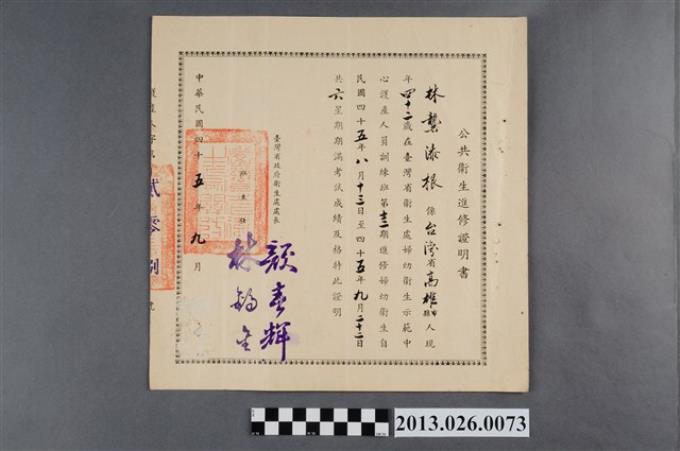 公共衛生進修證明書
林龔漆根 係台灣省高雄市縣人現
年四十二歲在臺灣省衛生處婦幼衛生示範中
心護產人員訓練班第十三期進修婦幼衛生自
民國四十五年八月十三日至四十五年九月二十二日
共六星期期滿考試成績及格特此證明
臺灣省政府衛生處處長 顏春輝
班主任 林錦全
中華民國四十五年九月
貳
2013.026.0073